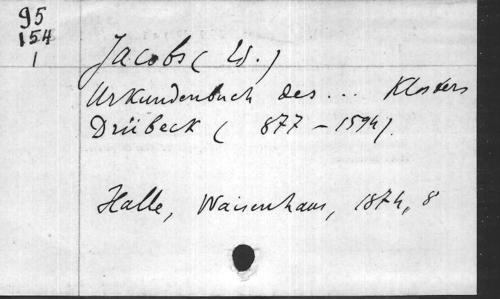 95
154
1
Jacobs ( Ed. )
Urkundenbuch des ... Klosters
Drübeck ( 877 - 1594 ).
Halle, Waisenhaus, 1874, 8